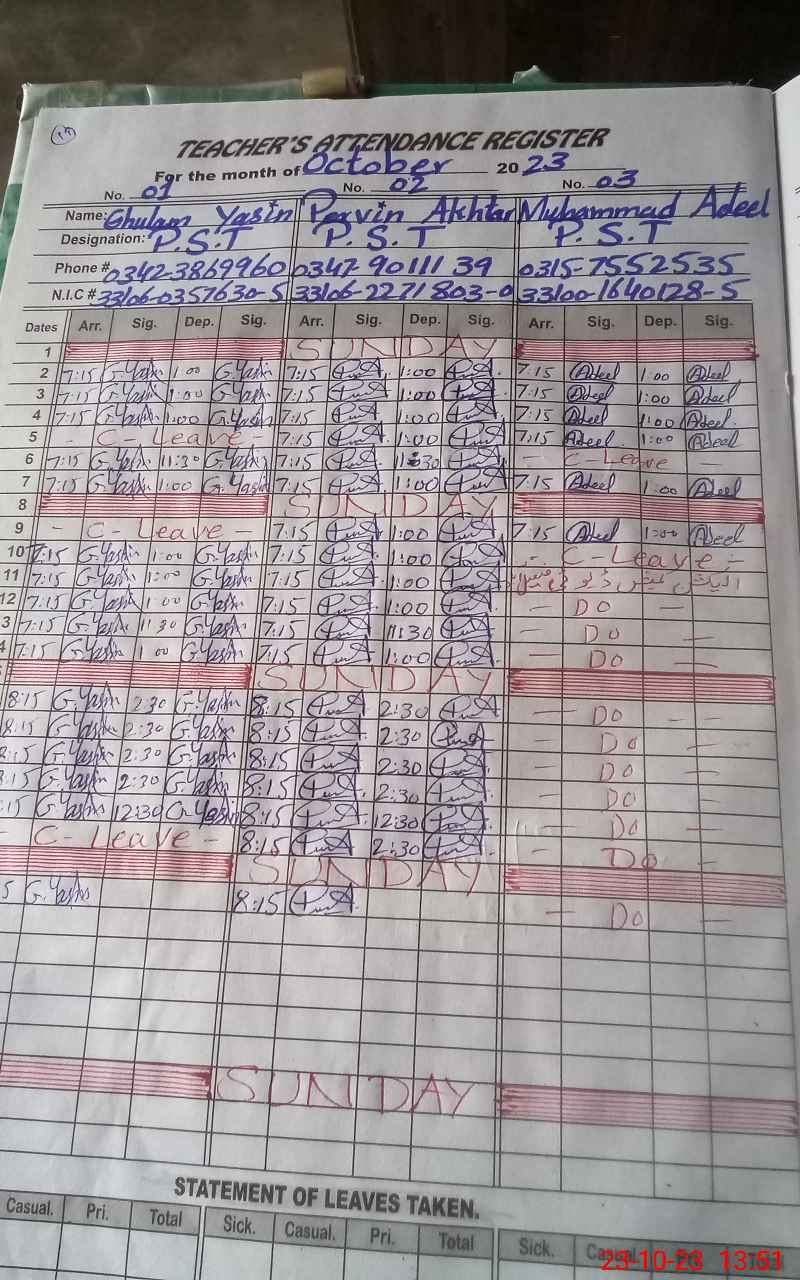 TEACHER'S ATTENDANCE REGISTER
For the month of October 2023
No. 01 No. 02 No. 03
Name: Ghulam Yasin Parvin Akhtar Muhammad Adeel
Designation: P.S.T P.S.T P.S.T
Phone # 0342-3869960 0347-9011139 0315-7552535
N.I.C # 33106-0357630-5 33106-2271803-0 33100-1640128-5
Dates Arr. Sig. Dep. Sig. Arr. Sig. Dep. Sig. Arr. Sig. Dep. Sig.
1 SUNDAY
2 7:15 G.Yasin 1:00 G.Yasin 7:15 1:00 7:15 Adeel 1:00 Adeel
3 7:15 G.Yasin 1:00 G.Yasin 7:15 1:00 7:15 Adeel 1:00 Adeel
4 7:15 G.Yasin 1:00 G.Yasin 7:15 1:00 7:15 Adeel 1:00 Adeel
5 - C-Leave - 7:15 1:00 7:15 Adeel 1:00 Adeel
6 7:15 G.Yasin 11:30 G.Yasin 7:15 11:30 - C-Leave -
7 7:15 G.Yasin 1:00 G.Yasin 7:15 1:00 7:15 Adeel 1:00 Adeel
8 SUNDAY
9 - C-Leave - 7:15 1:00 7:15 Adeel 1:00 Adeel
10 7:15 G.Yasin 1:00 G.Yasin 7:15 1:00 - C-Leave -
11 7:15 G.Yasin 1:00 G.Yasin 7:15 1:00 الیکشن کمیشن ڈیوٹی
12 7:15 G.Yasin 1:00 G.Yasin 7:15 1:00 - Do -
3 7:15 G.Yasin 11:30 G.Yasin 7:15 11:30 - Do -
4 7:15 G.Yasin 1:00 G.Yasin 7:15 1:00 - Do -
SUNDAY
8:15 G.Yasin 2:30 G.Yasin 8:15 2:30 - Do - -
8:15 G.Yasin 2:30 G.Yasin 8:15 2:30 - Do -
8:15 G.Yasin 2:30 G.Yasin 8:15 2:30 - Do -
8:15 G.Yasin 2:30 G.Yasin 8:15 2:30 - Do -
:15 G.Yasin 12:30 G.Yasin 8:15 12:30 - Do -
- C-Leave - 8:15 2:30 - Do -
SUNDAY
5 G.Yasin 8:15 - Do -
SUNDAY
STATEMENT OF LEAVES TAKEN.
Casual. Pri. Total Sick. Casual. Pri. Total Sick.
23-10-23 13:51